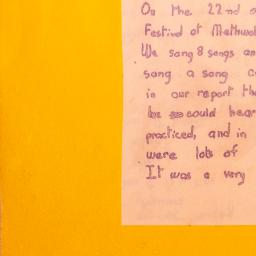 On the 22nd o
Festival at Methwol
We sang 8 songs an
sang a song c
in our report tha
be so could hear
practiced, and in
were lots of
It was a very